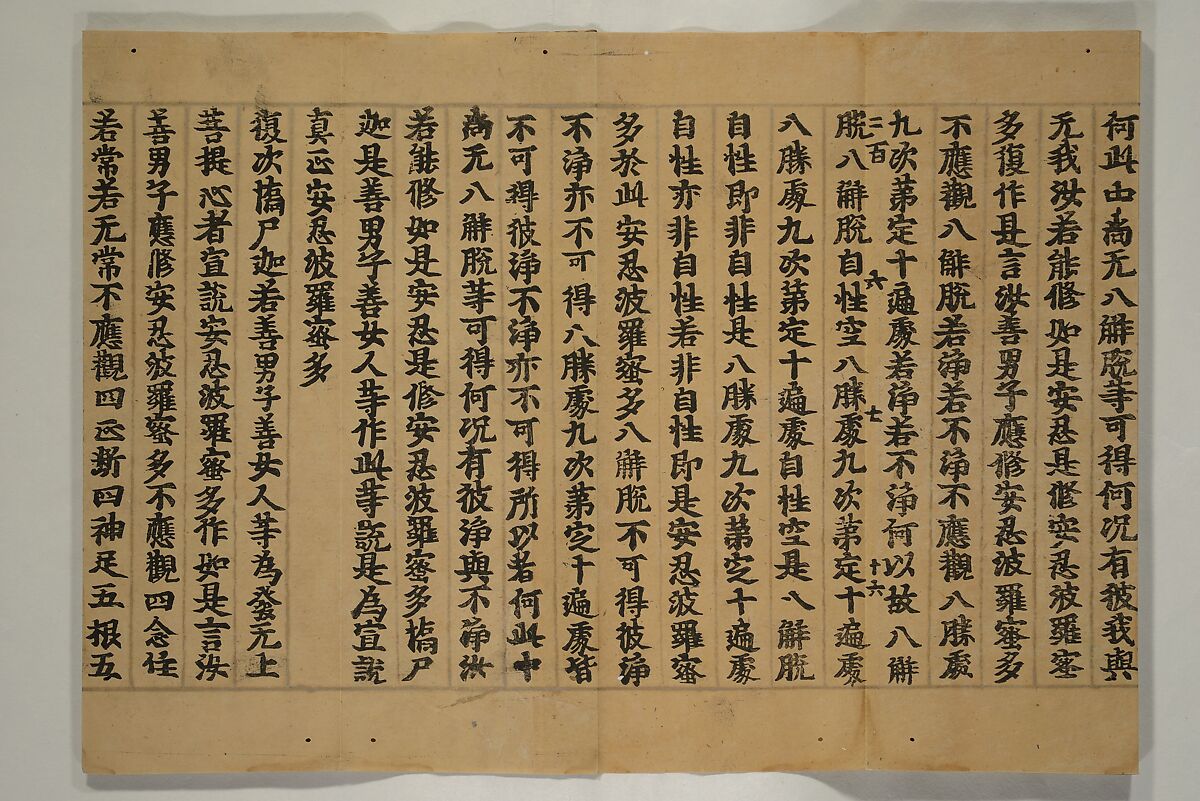 何此中尚无八解脫等可得何况有彼我與
无我汝若能修如是安忍是修安忍波羅蜜
多復作是言汝善男子應修安忍波羅蜜多
不應觀八解脫若淨若不淨不應觀八勝處
九次第定十遍處若淨若不淨何以故八解
二百 六 十七 十六
脫八解脫自性空八勝處九次第定十遍處
八勝處九次第定十遍處自性空是八解脫
自性即非自性是八勝處九次第定十遍處
自性亦非自性若非自性即是安忍波羅蜜
多於此安忍波羅蜜多八解脫不可得彼淨
不淨亦不可得八勝處九次第定十遍處皆
不可得彼淨不淨亦不可得所以者何此中
尚无八解脫等可得何况有彼淨與不淨汝
若能修如是安忍是修安忍波羅蜜多憍尸
迦是善男子善女人等作此等說是為宣說
真正安忍波羅蜜多
復次憍尸迦若善男子善女人等為發无上
菩提心者宣說安忍波羅蜜多作如是言汝
善男子應修安忍波羅蜜多不應觀四念住
若常若无常不應觀四正斷四神足五根五